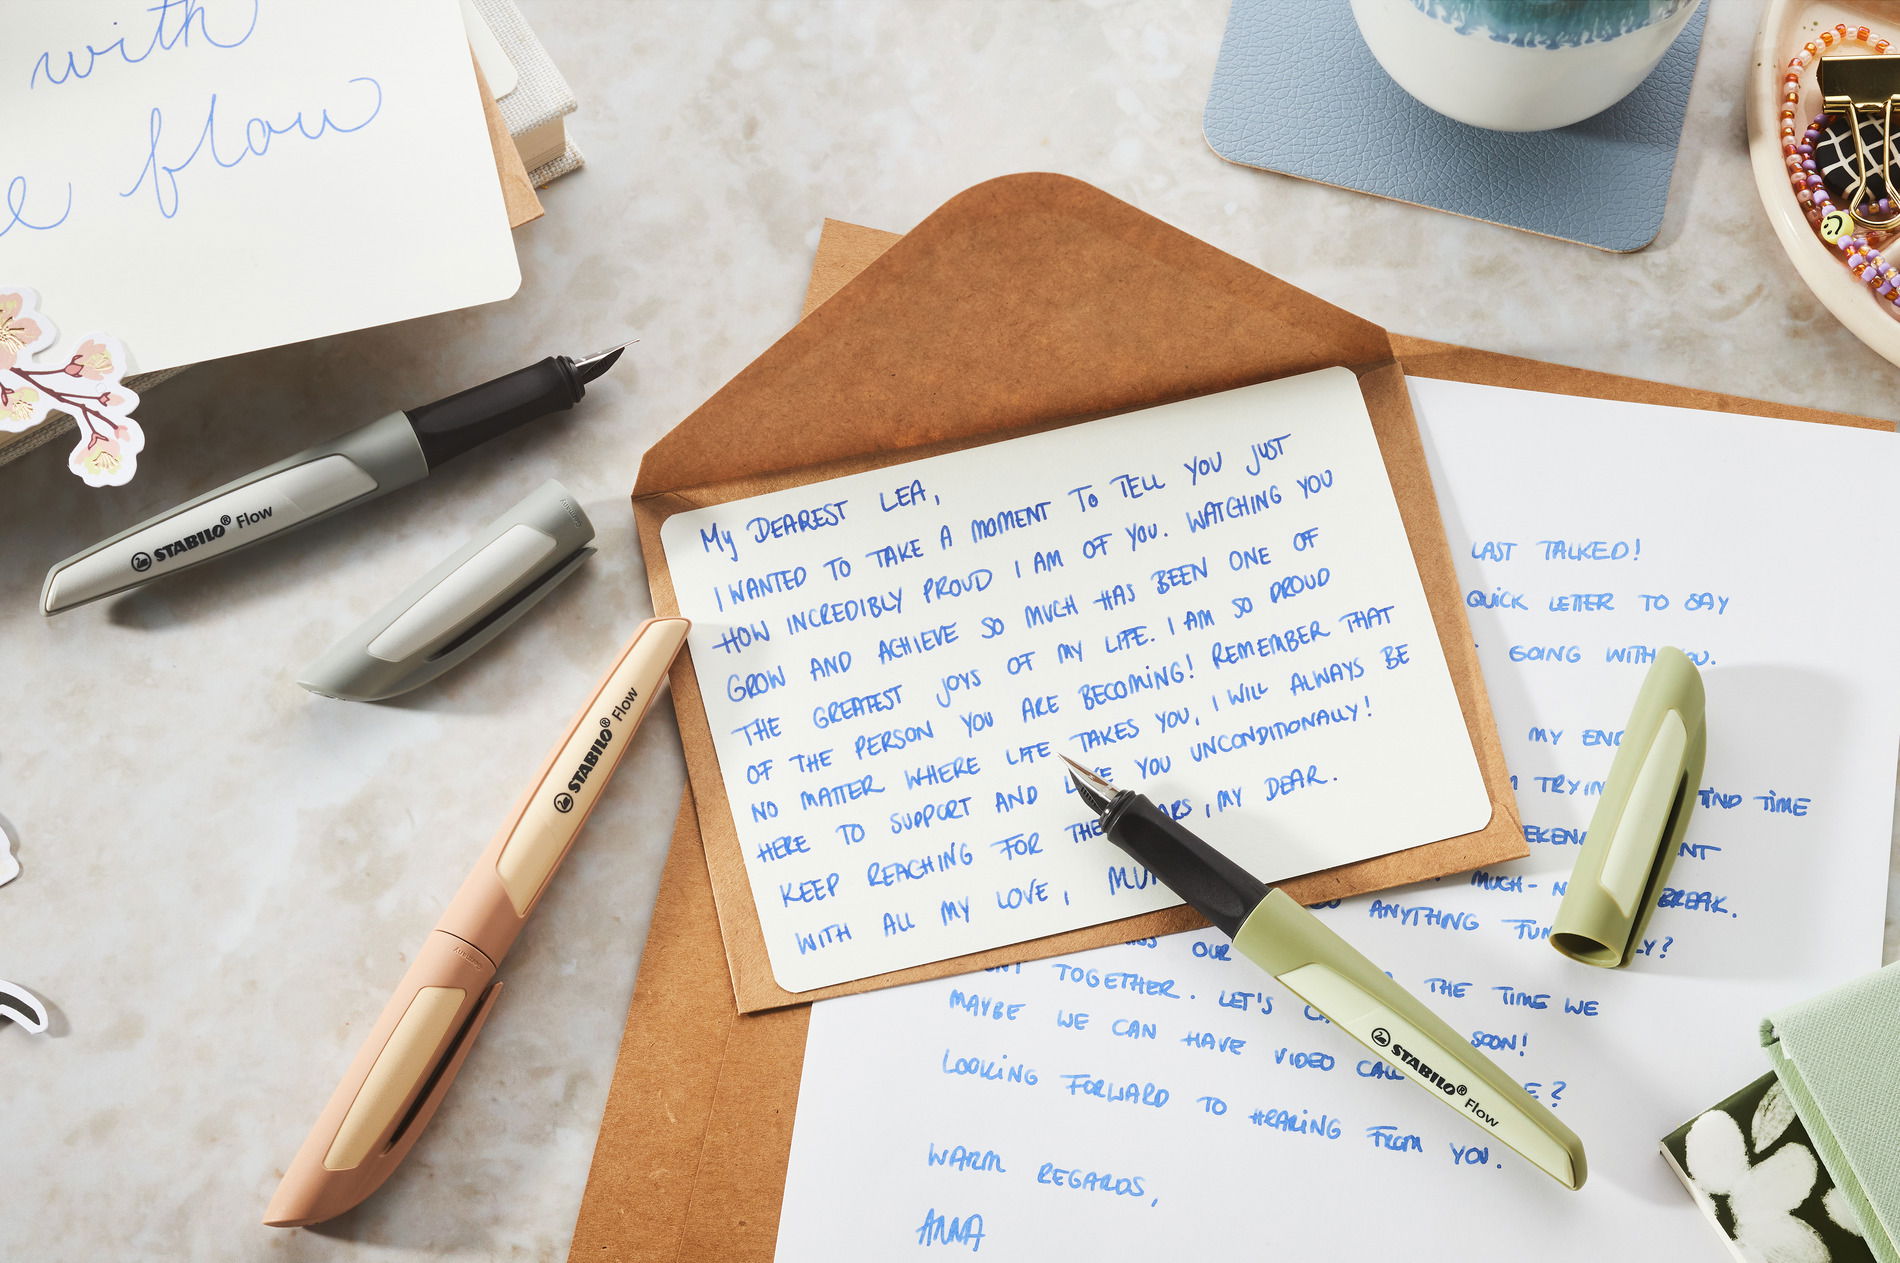 with
e flow
STABILO® Flow
Germany
STABILO® Flow
Germany
MY DEAREST LEA,
I WANTED TO TAKE A MOMENT TO TELL YOU JUST
HOW INCREDIBLY PROUD I AM OF YOU. WATCHING YOU
GROW AND ACHIEVE SO MUCH HAS BEEN ONE OF
THE GREATEST JOYS OF MY LIFE. I AM SO PROUD
OF THE PERSON YOU ARE BECOMING! REMEMBER THAT
NO MATTER WHERE LIFE TAKES YOU, I WILL ALWAYS BE
HERE TO SUPPORT AND YOU UNCONDITIONALLY!
KEEP REACHING FOR THE ARS, MY DEAR.
WITH ALL MY LOVE, MUM
LAST TALKED!
QUICK LETTER TO SAY
GOING WITH YOU.
MY EN
TRYIN FIND TIME
EEKEN NT
MUCH- N BREAK.
ANYTHING FUN LY?
OUR THE TIME WE
TOGETHER. LET'S SOON!
MAYBE WE CAN HAVE VIDEO CALL E?
LOOKING FORWARD TO HEARING FROM YOU.
WARM REGARDS,
ANNA
STABILO® Flow